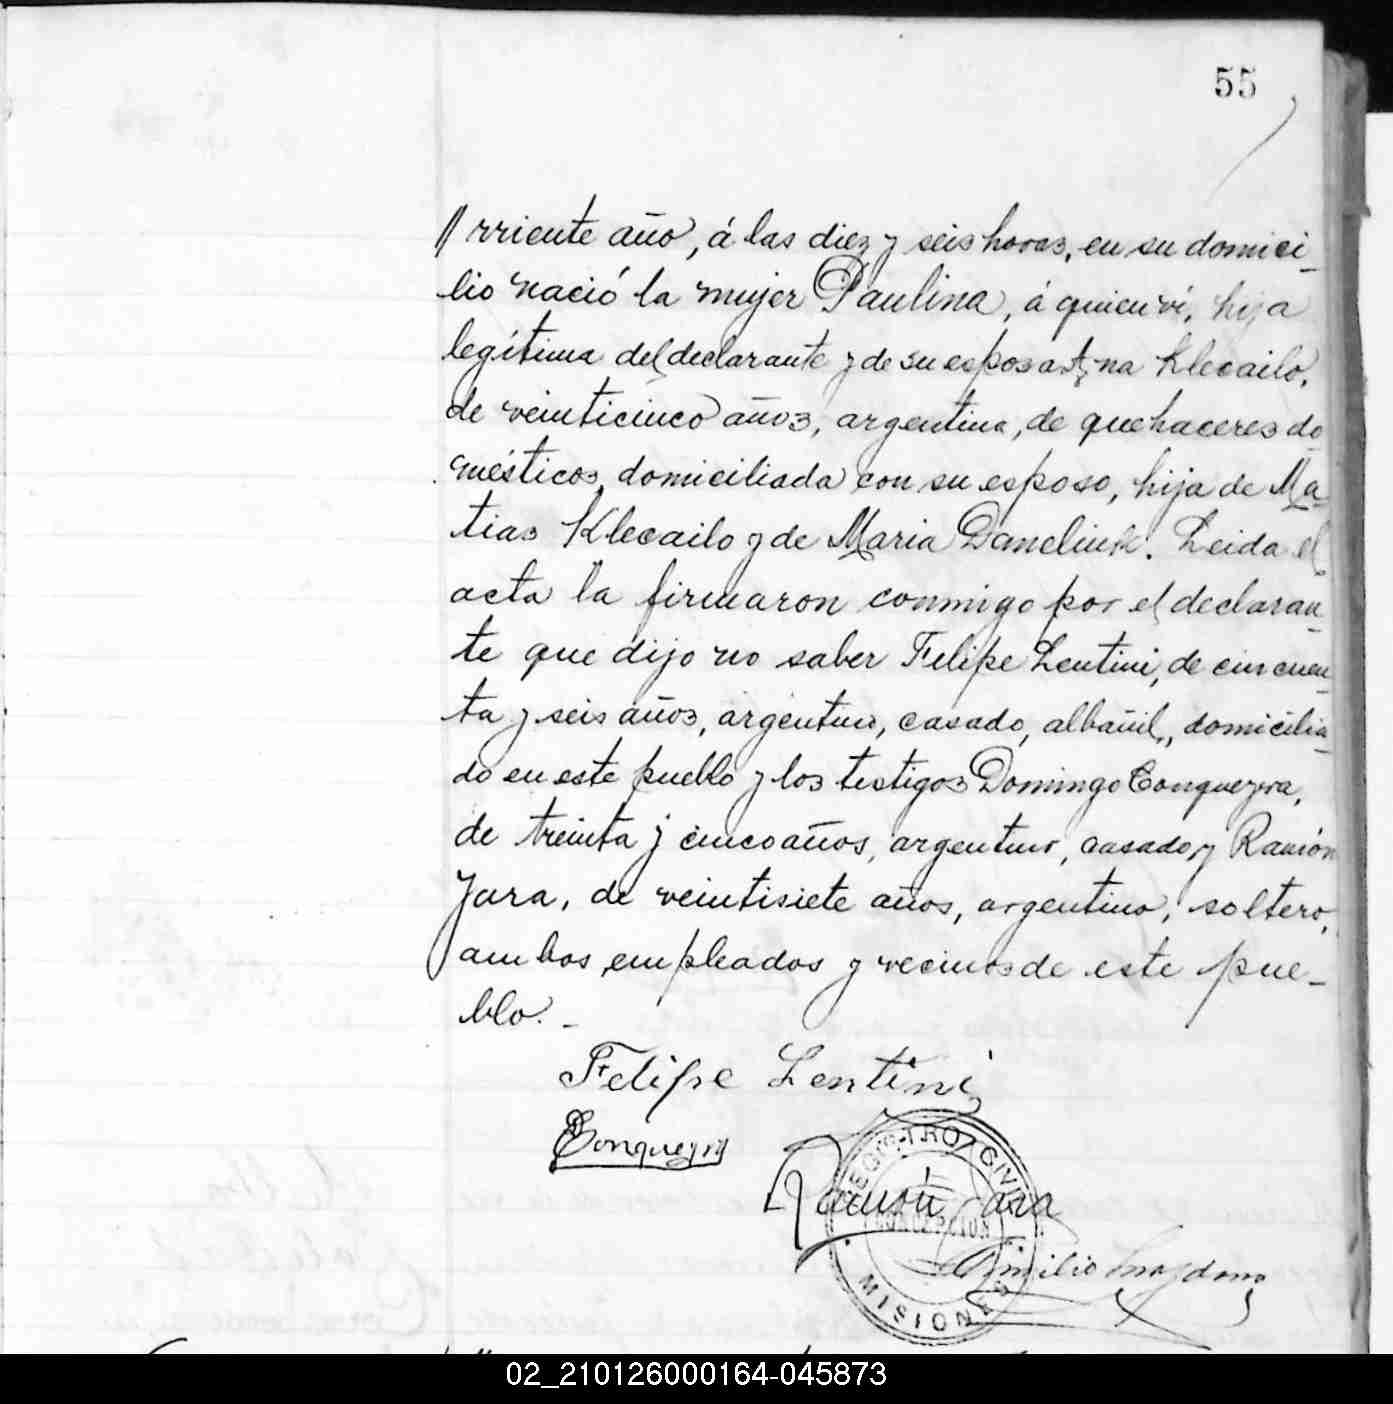 55
// rriente año, á las diez y seis horas, en su domici-
lio nació la mujer Paulina, á quien ví, hija
legítima del declarante y de su esposa Ana Klecailo,
de veinticinco años, argentina, de quehaceres do-
mésticos, domiciliada con su esposo, hija de Ma-
tias Klecailo y de Maria Daneliuk. Leida el
acta la firmaron conmigo por el declaran-
te que dijo no saber Felipe Lentini, de cincuen-
ta y seis años, argentino, casado, albañil, domicilia-
do en este pueblo y los testigos Domingo Conqueyra,
de treinta y cinco años, argentino, casado y Ramón
Jara, de veintisiete años, argentino, soltero,
ambos empleados y vecinos de este pue-
blo. -
Felipe Lentini
Ramón Jara
REGISTRO CIVIL
CONCEPCION
MISIONES
Emilio
02_210126000164-045873